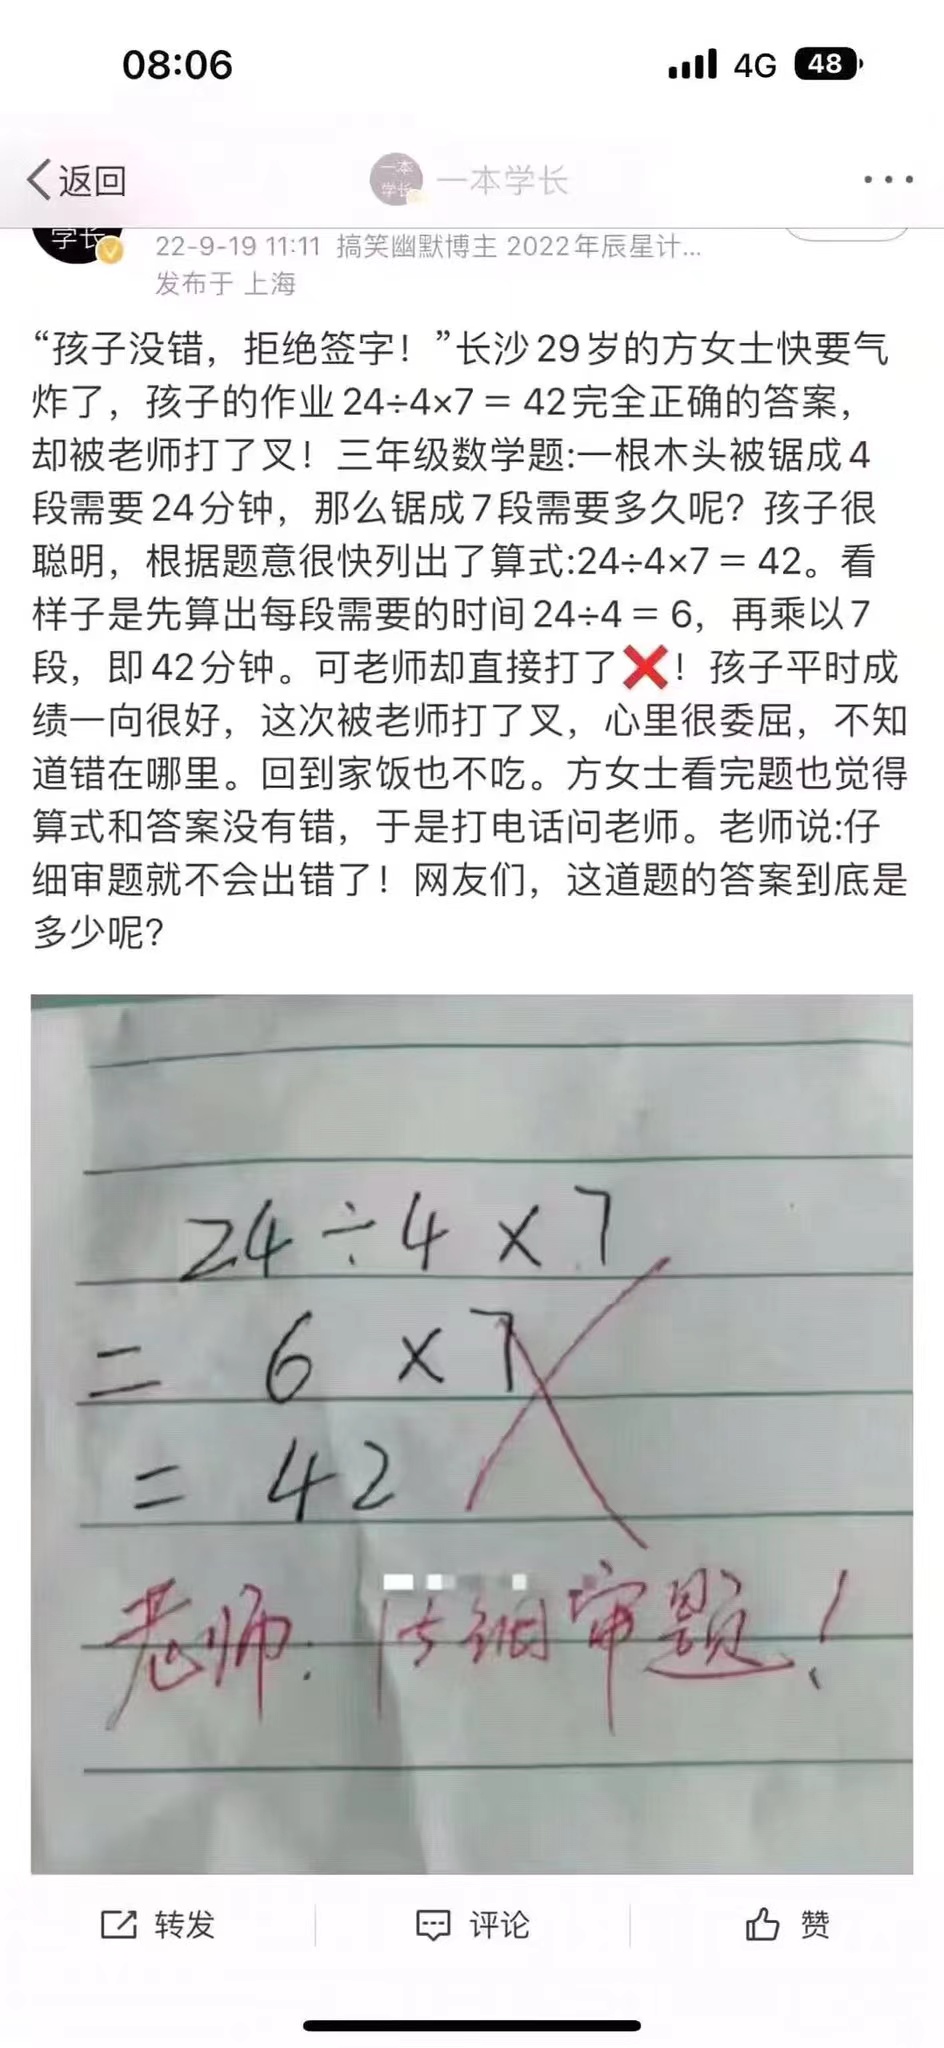 08:06
4G 48
返回
一本学长
一本学长
学长
22-9-19 11:11 搞笑幽默博主 2022年辰星计...
发布于 上海
“孩子没错，拒绝签字！”长沙29岁的方女士快要气
炸了，孩子的作业24÷4×7＝42完全正确的答案，
却被老师打了叉！三年级数学题:一根木头被锯成4
段需要24分钟，那么锯成7段需要多久呢？孩子很
聪明，根据题意很快列出了算式:24÷4×7＝42。看
样子是先算出每段需要的时间24÷4＝6，再乘以7
段，即42分钟。可老师却直接打了❌！孩子平时成
绩一向很好，这次被老师打了叉，心里很委屈，不知
道错在哪里。回到家饭也不吃。方女士看完题也觉得
算式和答案没有错，于是打电话问老师。老师说:仔
细审题就不会出错了！网友们，这道题的答案到底是
多少呢？
24÷4×7
= 6×7
= 42
老师：仔细审题！
转发 评论 赞